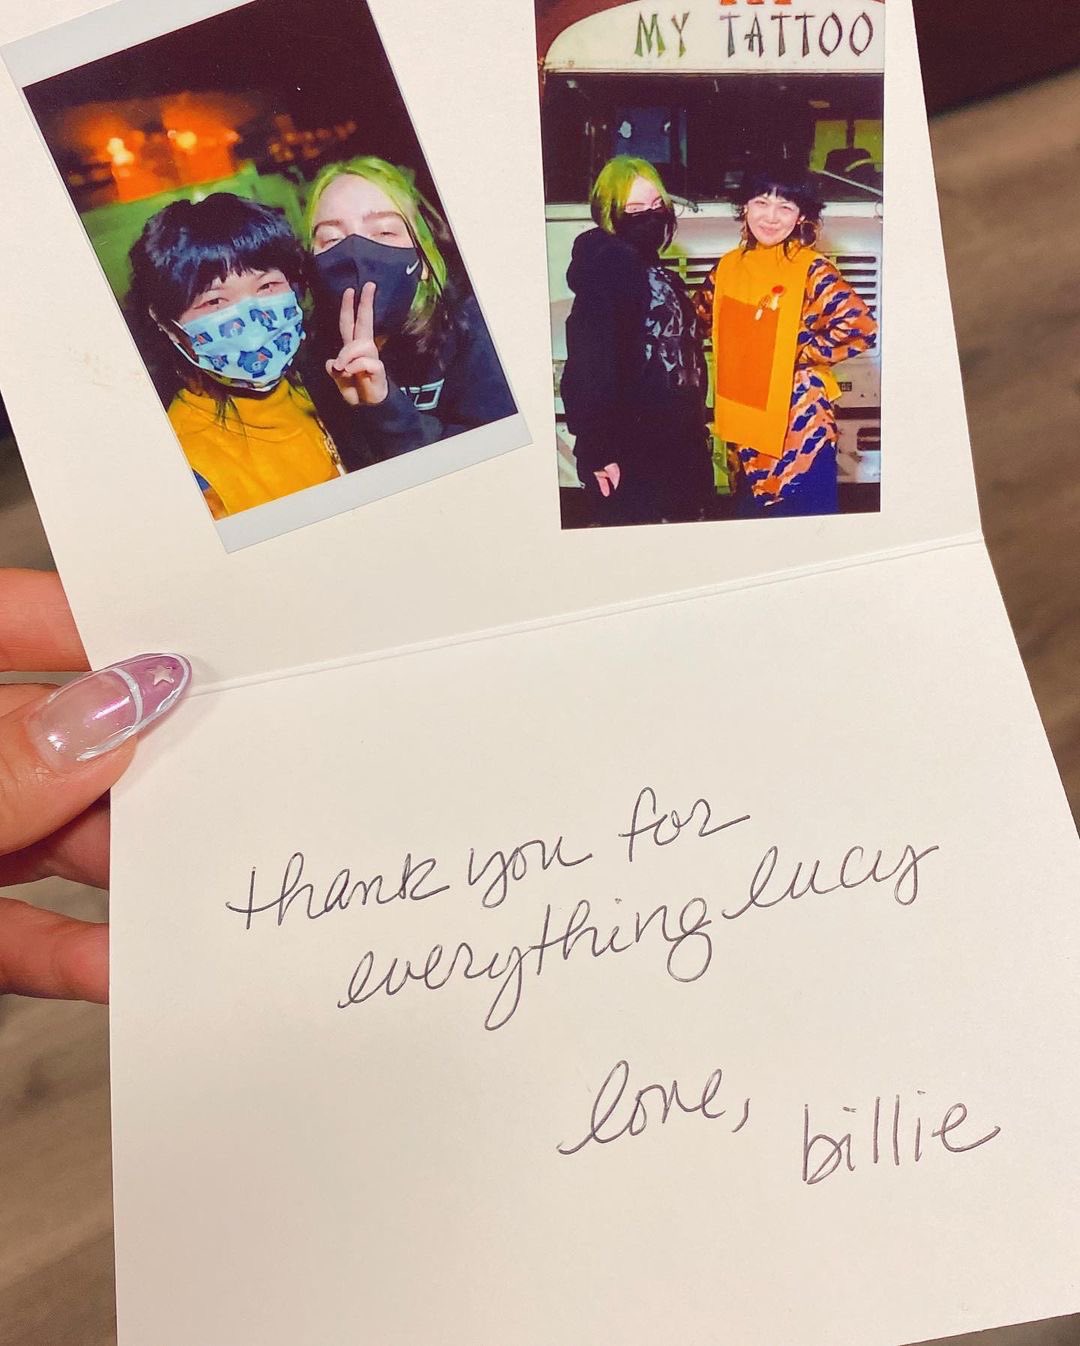 MY TATTOO
thank you for
everything lucy
love,
billie